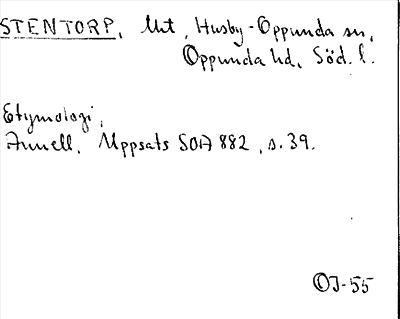 STENTORP, Unt, Husby-Oppunda sn,
Oppunda hd, Söd. l.
Etymologi,
Annell, Uppsats SOA 882, s. 39.
OJ-55